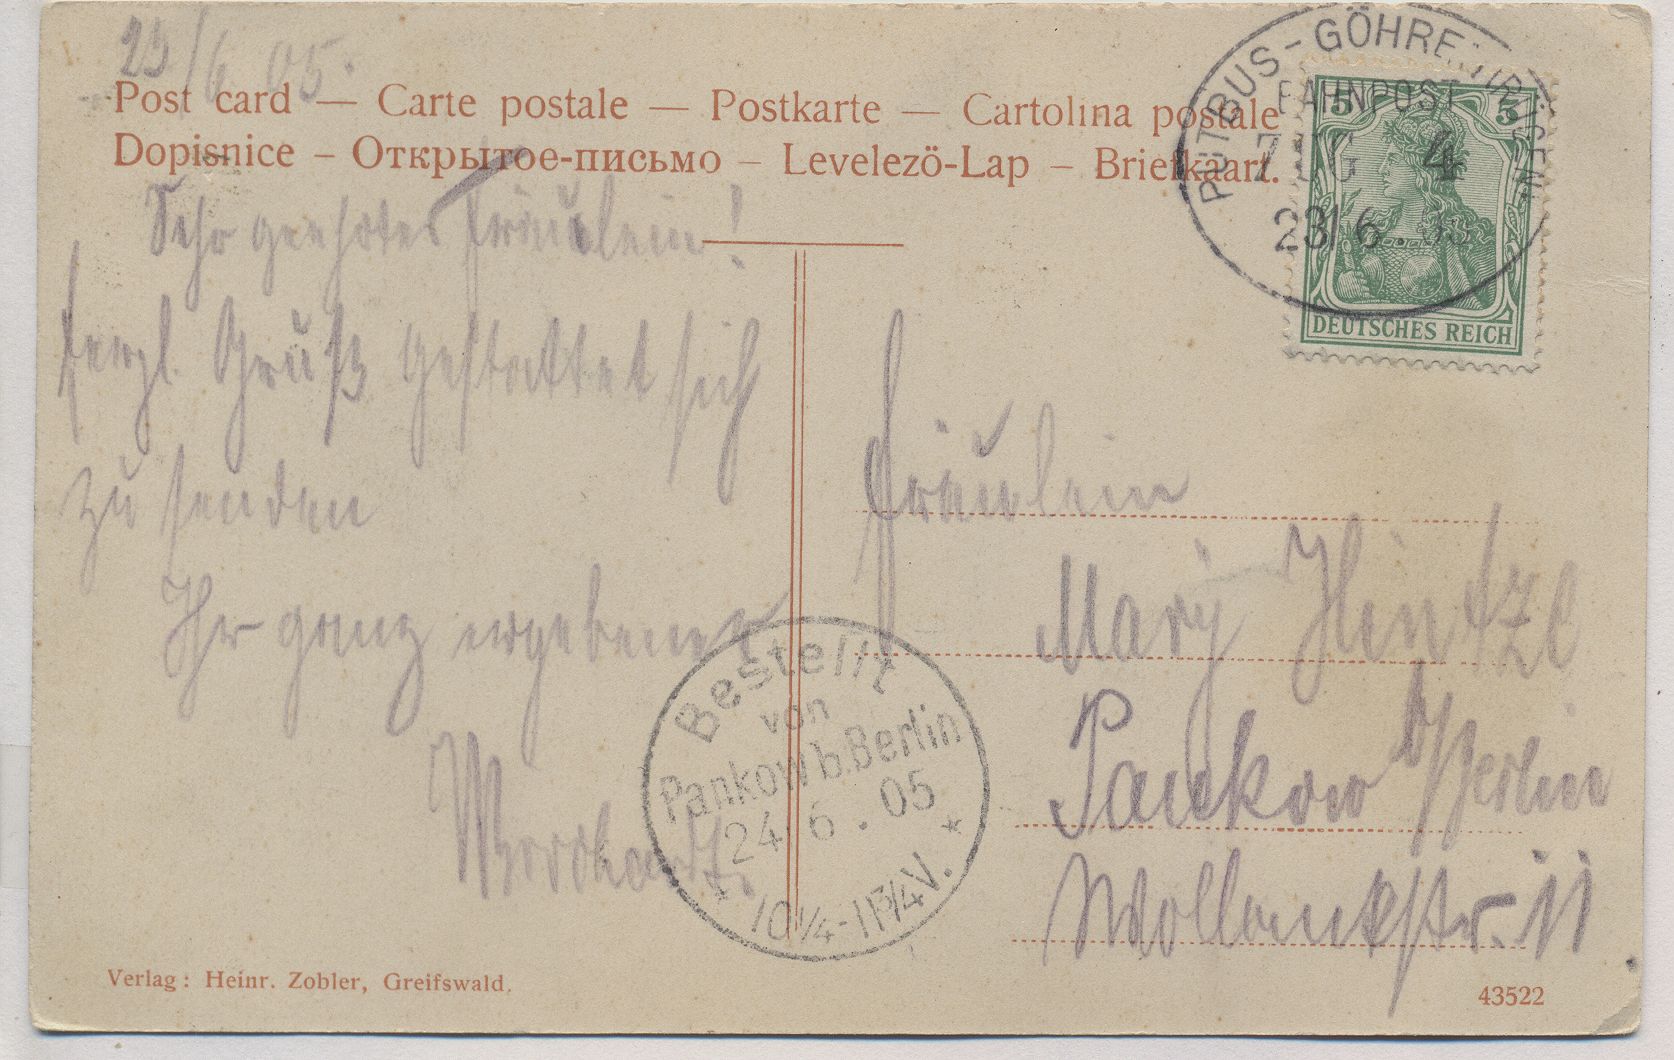 23/6 05.
Post card — Carte postale — Postkarte — Cartolina postale
Dopisnice – Открытое-письмо – Levelező-Lap – Briefkaart.
PUTBUS - GÖHREN (RÜGEN)
BAHNPOST
ZUG 4
23/6.05
5 5
DEUTSCHES REICH
Sehr geehrtes Fräulein!
herzl. Gruß gestattet sich
zu senden
Ihr ganz ergebener
Fräulein
Mary Hintze
Pankow b/Berlin
Wollankstr. 11
Bestellt
von
Pankow b. Berlin
24.6.05
* 10¼-11¾V. *
Verlag: Heinr. Zobler, Greifswald.
43522